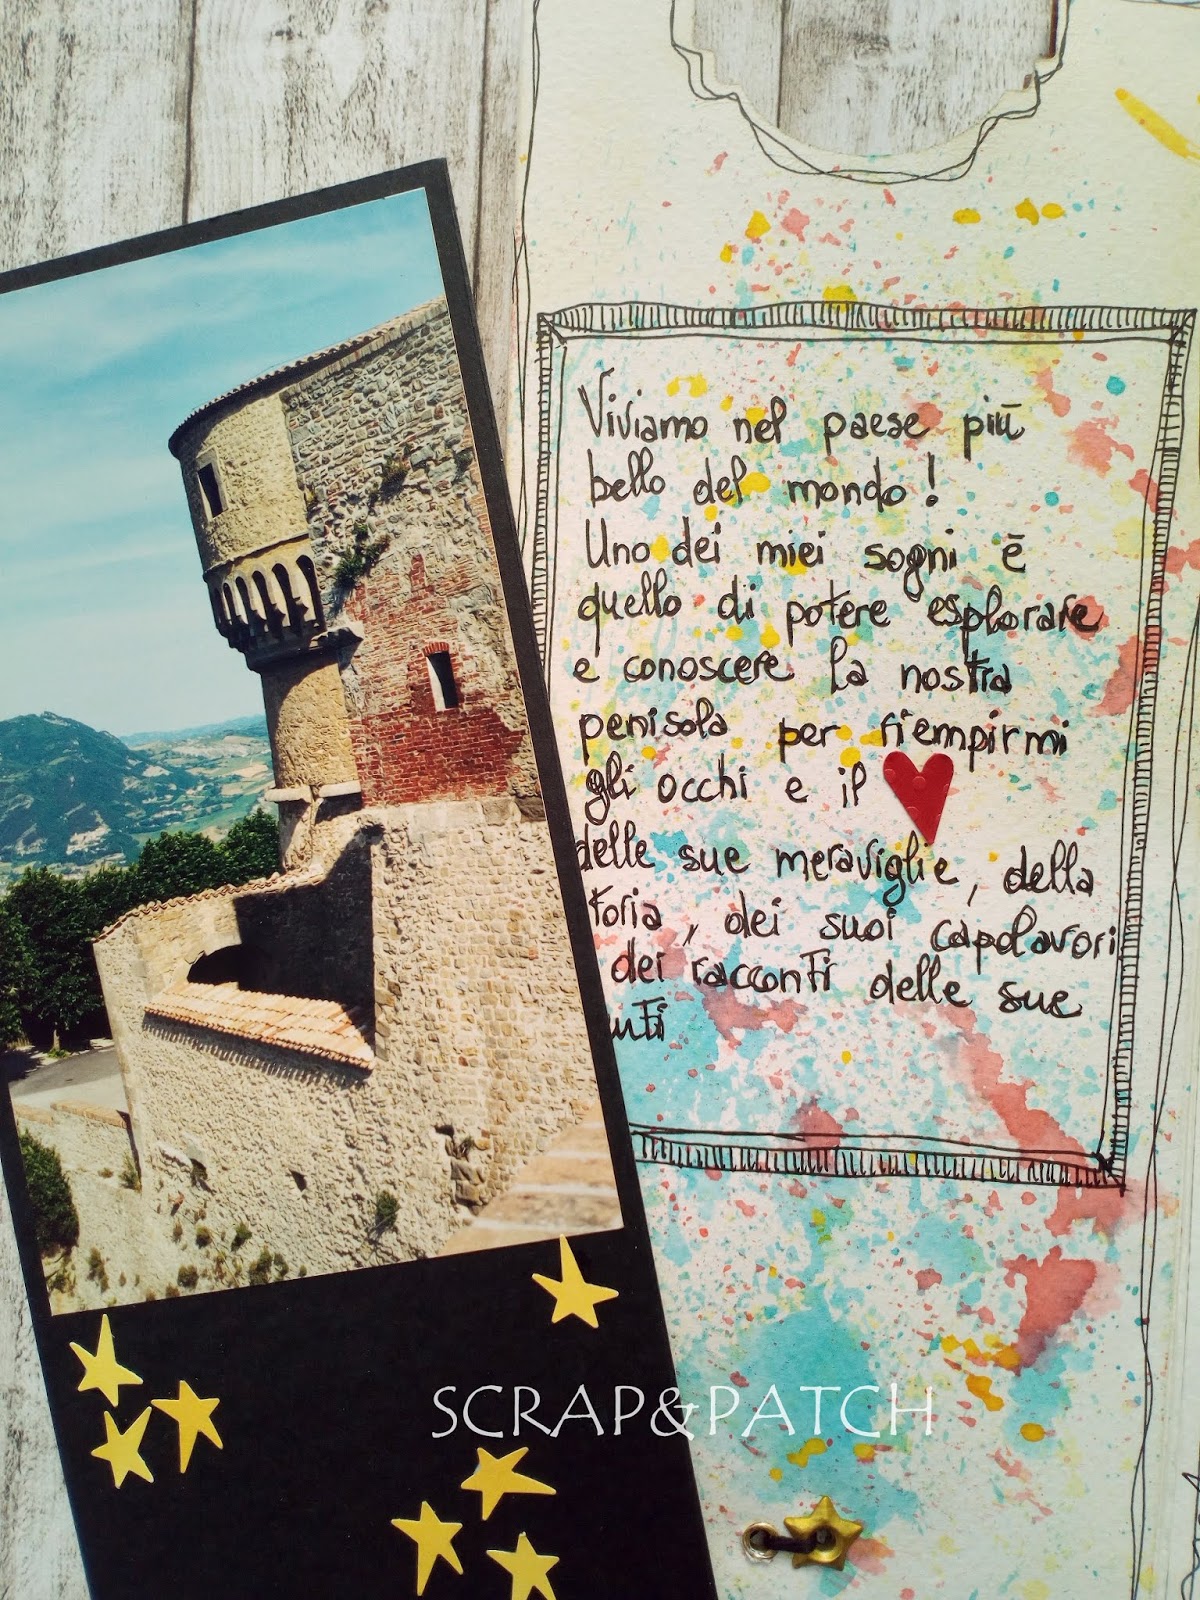 Viviamo nel paese più
bello del mondo!
Uno dei miei sogni è
quello di potere esplorare
e conoscere la nostra
penisola per riempirmi
gli occhi e il
delle sue meraviglie, della
toria, dei suoi capolavori
dei racconti delle sue
SCRAP&PATCH